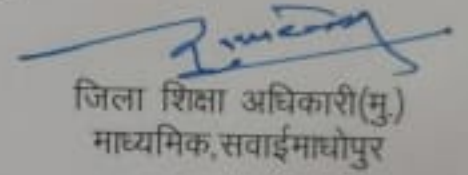 जिला शिक्षा अधिकारी(मु.)
माध्यमिक,सवाईमाधोपुर